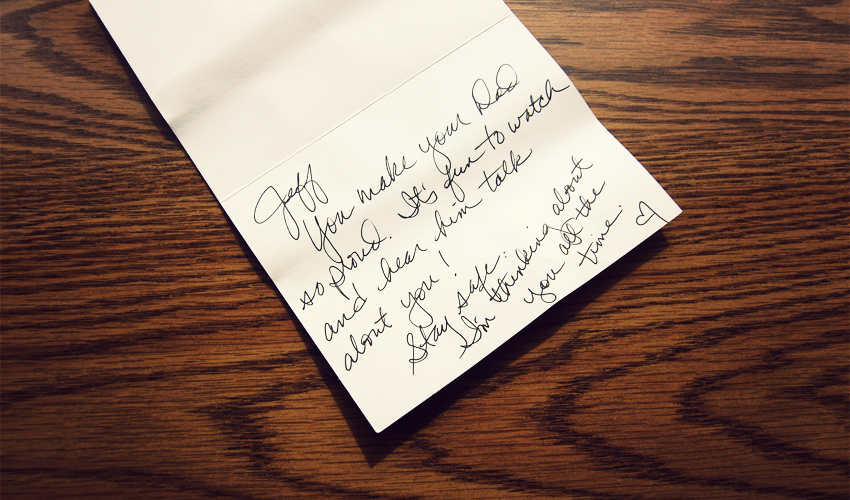 Jeff
You make your Dad
so proud. It's fun to watch
and hear him talk
about you!
Stay safe.
I'm thinking about
you all the
time.